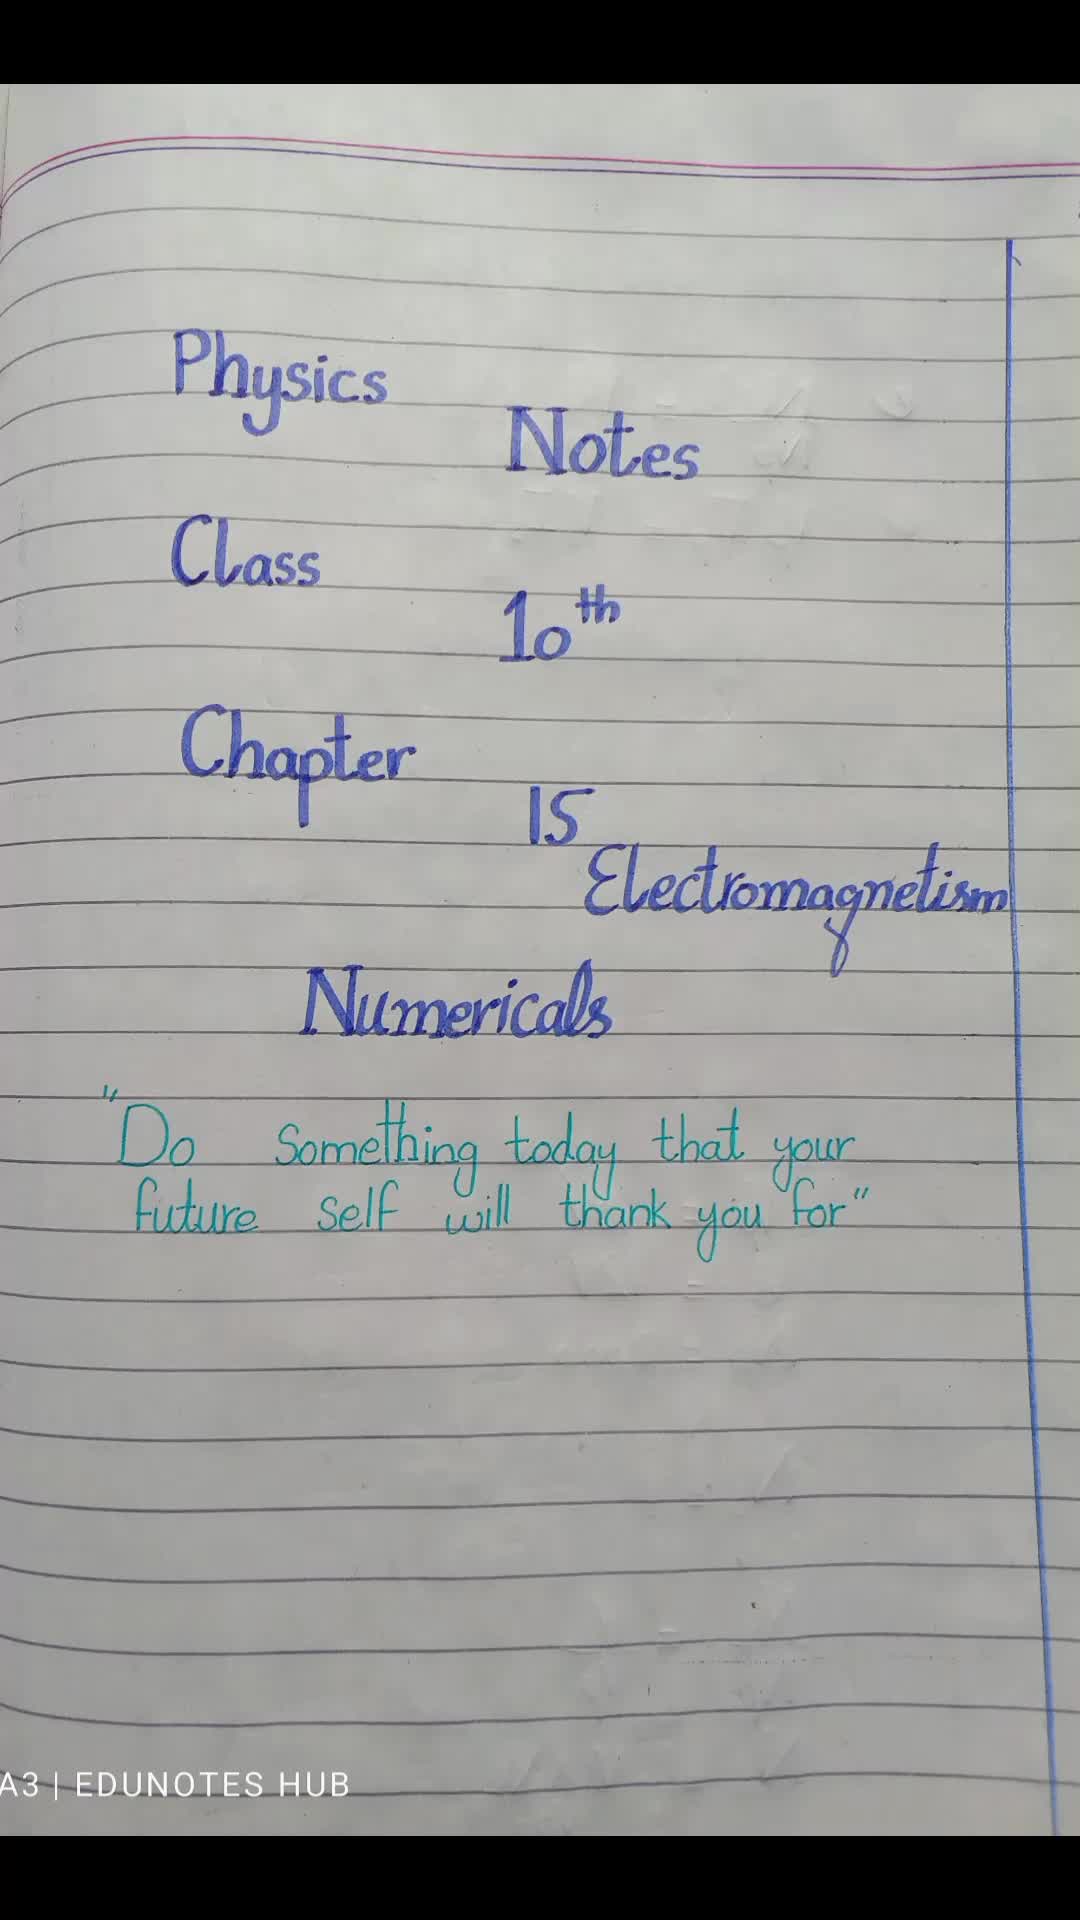 Physics
Notes
Class
10th
Chapter
15
Electromagnetism
Numericals
"Do something today that your
future self will thank you for"
A3 | EDUNOTES HUB